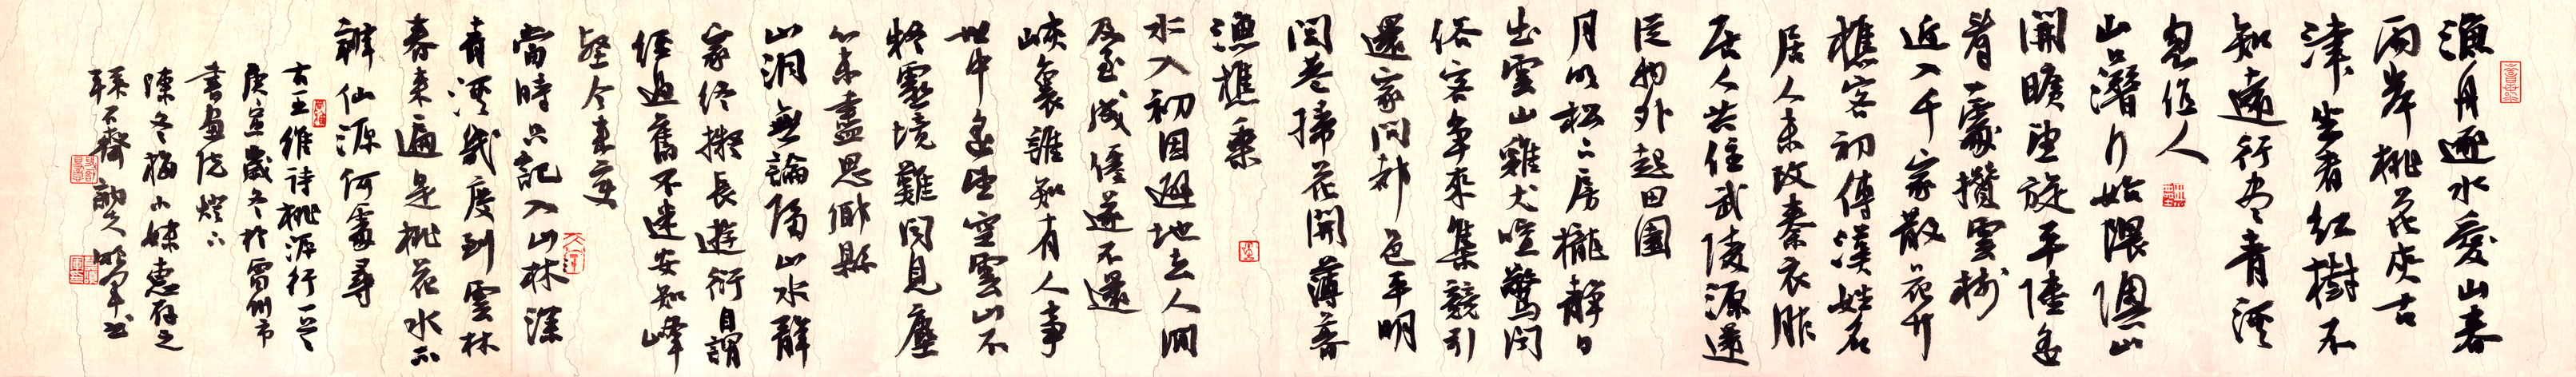 漁舟逐水愛山春
兩岸桃花夾古
津坐看紅樹不
知遠行盡青溪
忽值人
山口潛行始隈隩山
開曠望旋平陸遙
看一處攢雲樹
近入千家散花竹
樵客初傳漢姓名
居人未改秦衣服
居人共住武陵源還
從物外起田園
月明松下房櫳靜日
出雲山雞犬喧驚聞
俗客爭來集競引
還家問都邑平明
閭巷掃花開薄暮
漁樵乘
水入初因避地去人間
及至成僊遂不還
峽裏誰知有人事
世中遙望空雲山不
疑靈境難聞見塵
心未盡思鄉縣
出洞無論隔山水辭
家終擬長遊衍自謂
經過舊不迷安知峰
壑今來變
當時只記入山林深
青溪幾度到雲林
春來遍是桃花水不
辨仙源何處尋
古王維詩桃源行一首
庚寅歲冬於雷州市
書畫院燈下
陳冬梅小妹惠存之